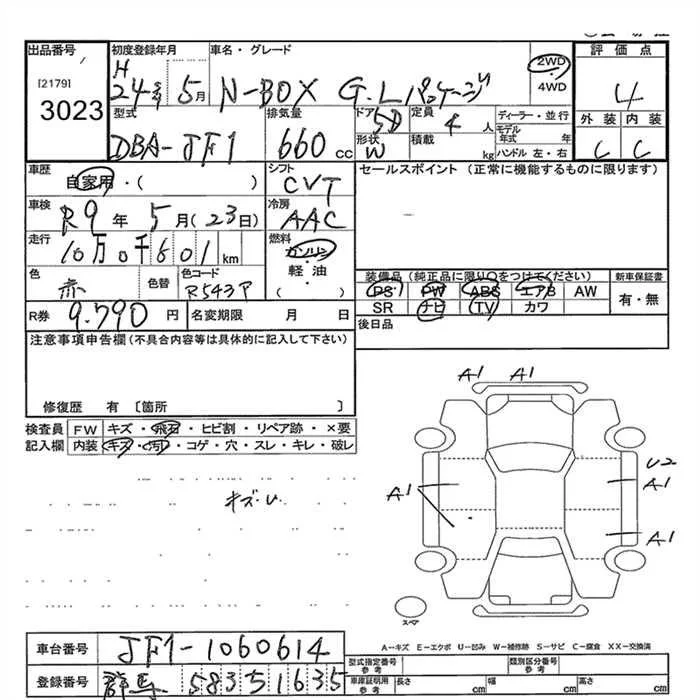 出品番号
[2179]
3023
初度登録年月
H 24年 5月
車名・グレード
N-BOX G.Lパッケージ
2WD
4WD
評価点
4
外装 内装
C C
型式
DBA-JF1
排気量
660 cc
ドア 5D
形状 W
定員 4 人
積載 kg
ディーラー・並行
モデル年式 年
ハンドル 左・右
車歴
自家用・( )
シフト
CVT
セールスポイント(正常に機能するものに限ります)
車検
R9年 5月(23日)
冷房
AAC
走行
10万0千601 km
燃料
ガソリン
軽・油
( )
色
赤
色替
色コード
R543P
装備品(純正品に限り○をつけてください)
新車保証書
PS PW ABS エアB AW
SR ナビ TV カワ
有・無
R券 9.790 円
名変期限 月 日
後日品
注意事項申告欄(不具合内容等は具体的に記入して下さい)
修復歴 有〔箇所 〕
検査員 FW キズ・飛石・ヒビ割・リペア跡・×要
記入欄 内装 キズ・汚れ・コゲ・穴・スレ・キレ・破レ
キズ・U
A1 A1
U2
A1
A1
A1
スペア
A-キズ E-エクボ U-凹み W-補修跡 S-サビ C-腐食 XX-交換済
車台番号 JF1-1060614
登録番号 群馬 583 51635
型式指定番号 参考
類別区分番号 参考
車庫証明用 参考 長さ cm 幅 cm 高さ cm